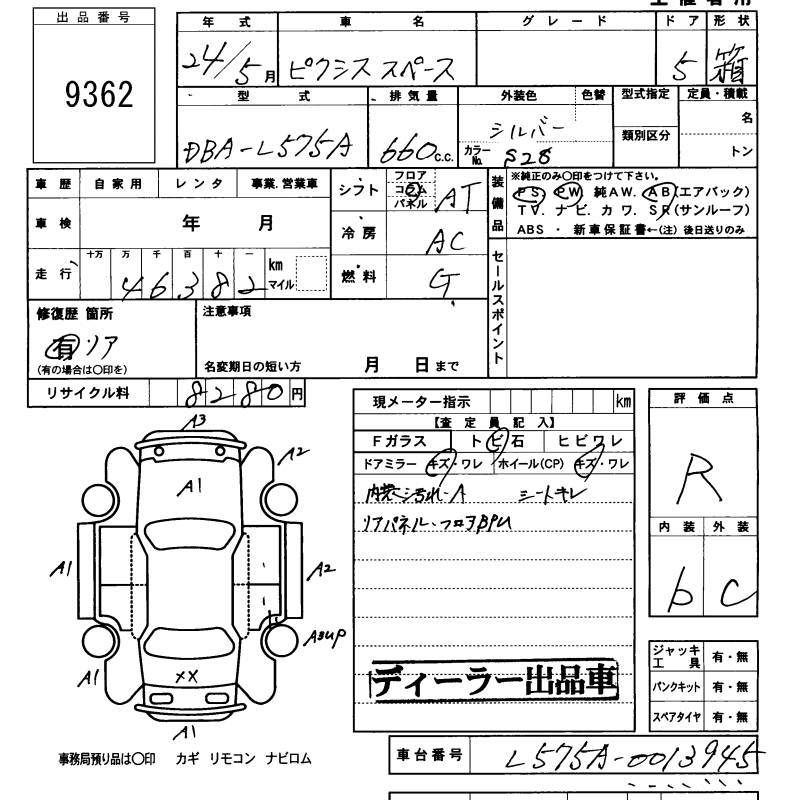 出品番号
9362
年式 車名 グレード ドア 形状
24/5月 ピクシス スペース 5 箱
型式 排気量 外装色 色替 型式指定 定員・積載
DBA-L575A 660c.c. シルバー 類別区分 名
カラーNo. S28 トン
車歴 自家用 レンタ 事業.営業車
シフト フロア コラム パネル AT
装備品 ※純正のみ○印をつけて下さい。
PS. PW. 純AW. AB(エアバック)
TV. ナビ. カワ. SR(サンルーフ)
ABS ・ 新車保証書←(注) 後日送りのみ
車検 年 月
冷房 AC
走行 十万 万 千 百 十 一
46382 km マイル
燃料 G
セールスポイント
修復歴 箇所
有 リア
(有の場合は○印を)
注意事項
名変期日の短い方 月 日まで
リサイクル料 8280円
現メーター指示 km
【査定員記入】
Fガラス トビ石 ヒビワレ
ドアミラー キズ・ワレ ホイール(CP) キズ・ワレ
内装ヨゴれ・A シートキレ
リアパネル・フロアBPU
ディーラー出品車
評価点
R
内装 外装
b C
ジャッキ工具 有・無
パンクキット 有・無
スペアタイヤ 有・無
A3
A2
A1
A1
A2
A3UP
A1
XX
A1
事務局預り品は○印 カギ リモコン ナビロム
車台番号 L575A-0013945